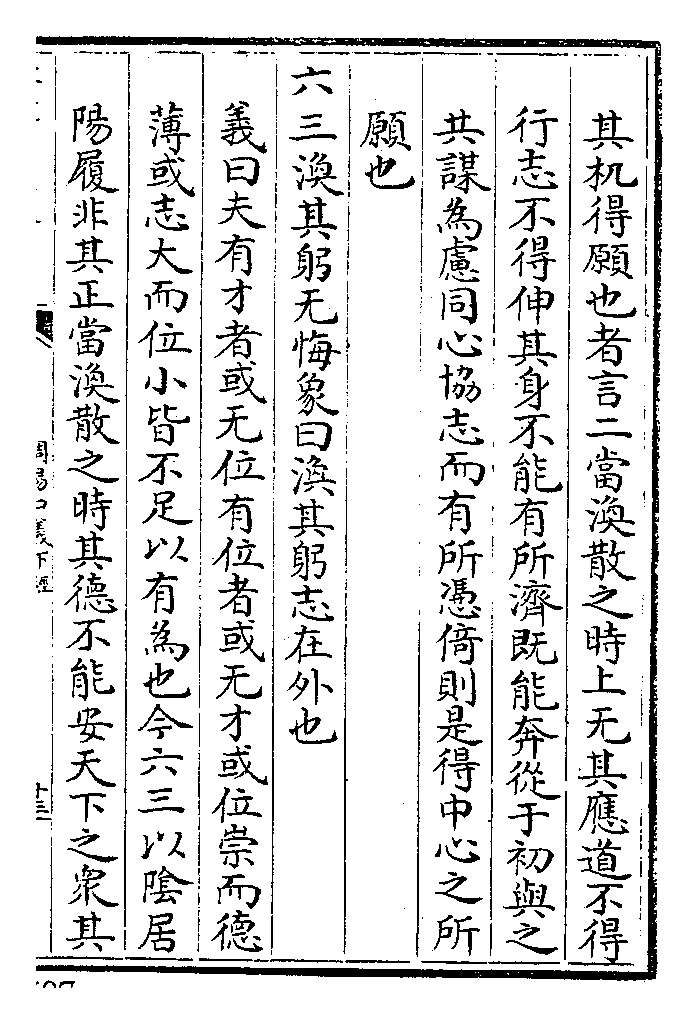 其机得願也者言二當渙散之時上无其應道不得
行志不得伸其身不能有所濟既能奔從于初與之
共謀為慮同心協志而有所憑倚則是得中心之所
願也
六三渙其躬无悔象曰渙其躬志在外也
義曰夫有才者或无位有位者或无才或位崇而德
薄或志大而位小皆不足以有為也今六三以陰居
陽履非其正當渙散之時其德不能安天下之衆其
周易口義下經